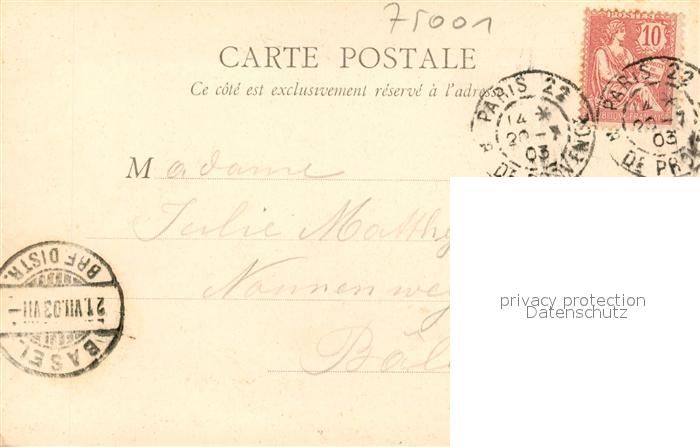 75001
CARTE POSTALE
Ce côté est exclusivement réservé à l'adresse
POSTES
10
PARIS 22
14 *
20 - 7
03
DE PROVENCE
PARIS 22
14 *
20 - 7
03
DE PROV
Madame
Julie Matthy
Nonnenweg
Bâl
BRF. DISTR.
21.VII.03.VII-
BASEL
privacy protection
Datenschutz